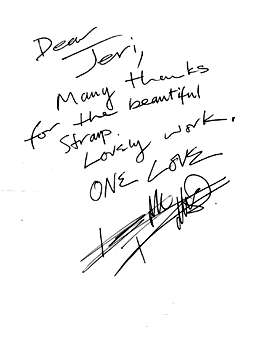 Dear
Jeri,
Many thanks
for the beautiful
strap.
Lovely work.
ONE LOVE